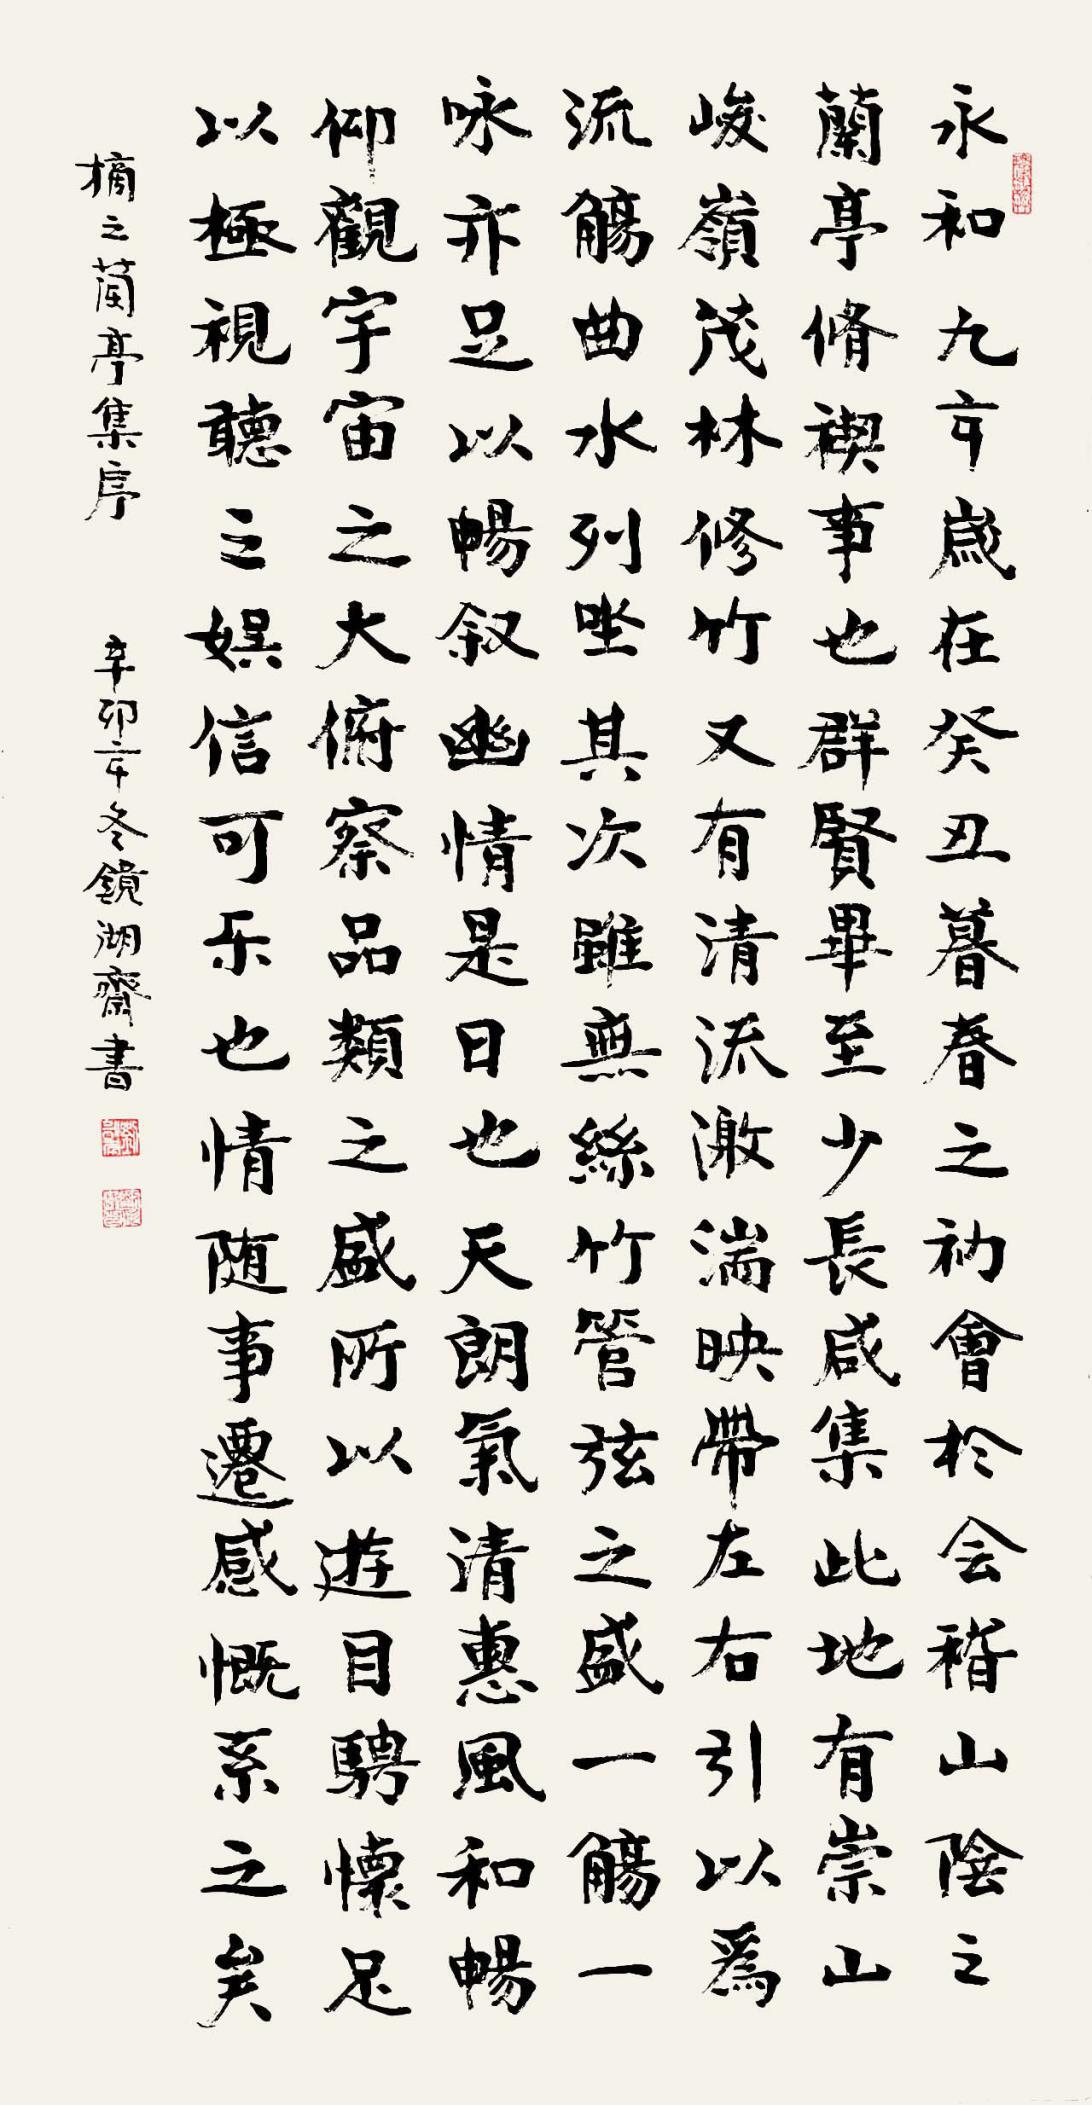 永和九年歲在癸丑暮春之初會於会稽山陰之
蘭亭脩禊事也群賢畢至少長咸集此地有崇山
峻嶺茂林修竹又有清流激湍映帶左右引以為
流觴曲水列坐其次雖無絲竹管弦之盛一觴一
咏亦足以暢叙幽情是日也天朗氣清惠風和暢
仰觀宇宙之大俯察品類之盛所以遊目騁懷足
以極視聽之娱信可乐也情随事遷感慨系之矣
摘之蘭亭集序 辛卯年冬鏡湖齋書